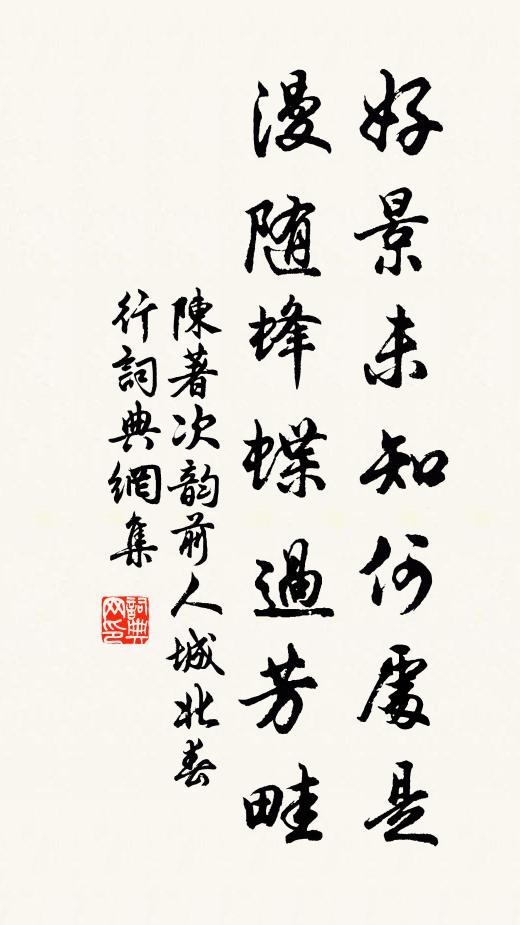 好景未知何處是
漫随蜂蝶過芳畦
陳著次韵前人城北春
行詞典網集
詞典
网印